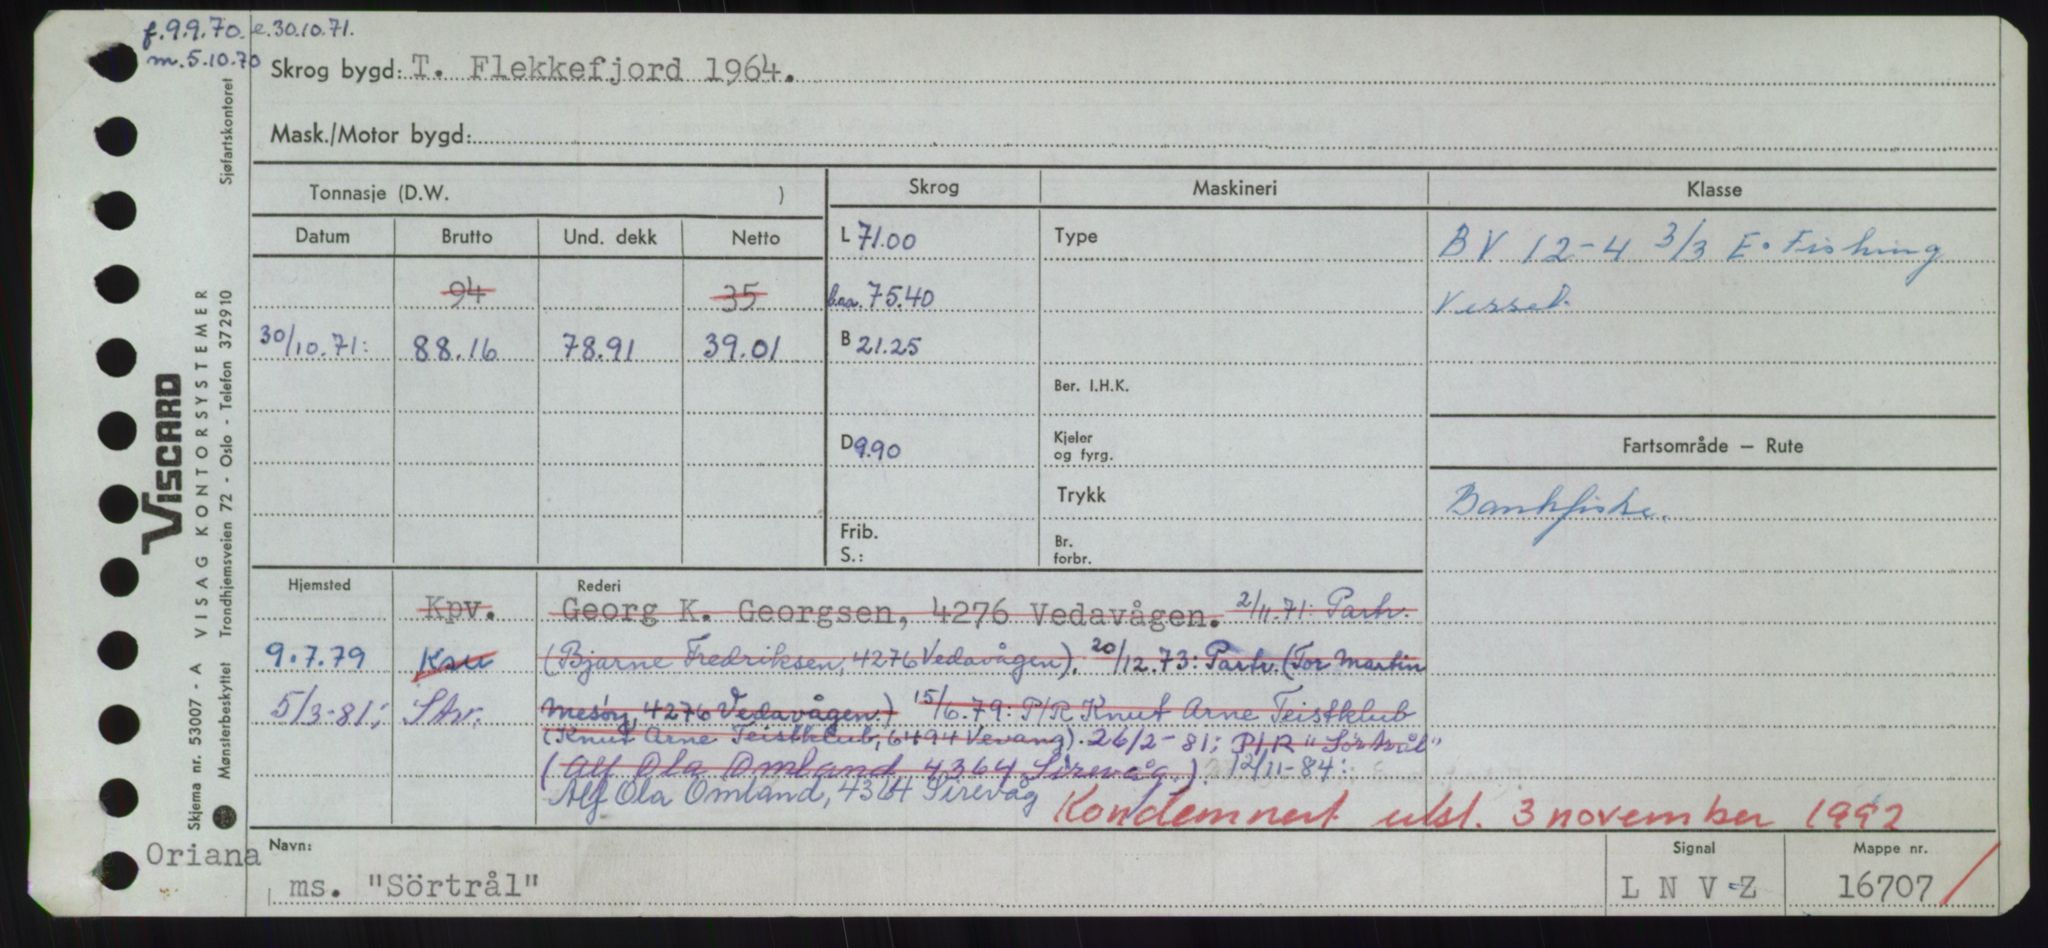 f. 9.9.70. e. 30.10.71.
m. 5.10.70
Skrog bygd: T. Flekkefjord 1964.
Mask./Motor bygd:
Tonnasje (D.W. )
Skrog
Maskineri
Klasse
Datum Brutto Und. dekk Netto
L 71.00
Type
BV 12-4 3/3 E. Fishing
94 35
b.a.a. 75.40
Vessel.
30/10.71: 88.16 78.91 39.01
B 21.25
Ber. I.H.K.
D 9.90
Kjeler
og fyrg.
Fartsområde — Rute
Trykk
Bankfiske.
Frib.
S.:
Br.
forbr.
Hjemsted
Rederi
Kpv. Georg K. Georgsen, 4276 Vedavågen. 2/11.71: Parh.
9.7.79 Ksu (Bjarne Fredriksen, 4276 Vedavågen). 20/12.73: Parh. (Tor Martin
5/3-81; SAv. Mesöy, 4276 Vedavågen.) 15/6.79: P/R Knut Arne Teistklub
(Knut Arne Teistklub, 6494 Vevang). 26/2-81; P/R "Sörtrål"
(Alf Ola Omland, 4364 Sirevåg.). 12/11-84:
Alf Ola Omland, 4364 Sirevåg
Kondemnert utst. 3 november 1992
Oriana
Navn:
ms. "Sörtrål"
Signal
L N V Z
Mappe nr.
16707
Sjøfartskontoret
VISCARD
Skjema nr. 53007 - A VISAG KONTORSYSTEMER
Mønsterbeskyttet Trondhjemsveien 72 - Oslo - Telefon 372910